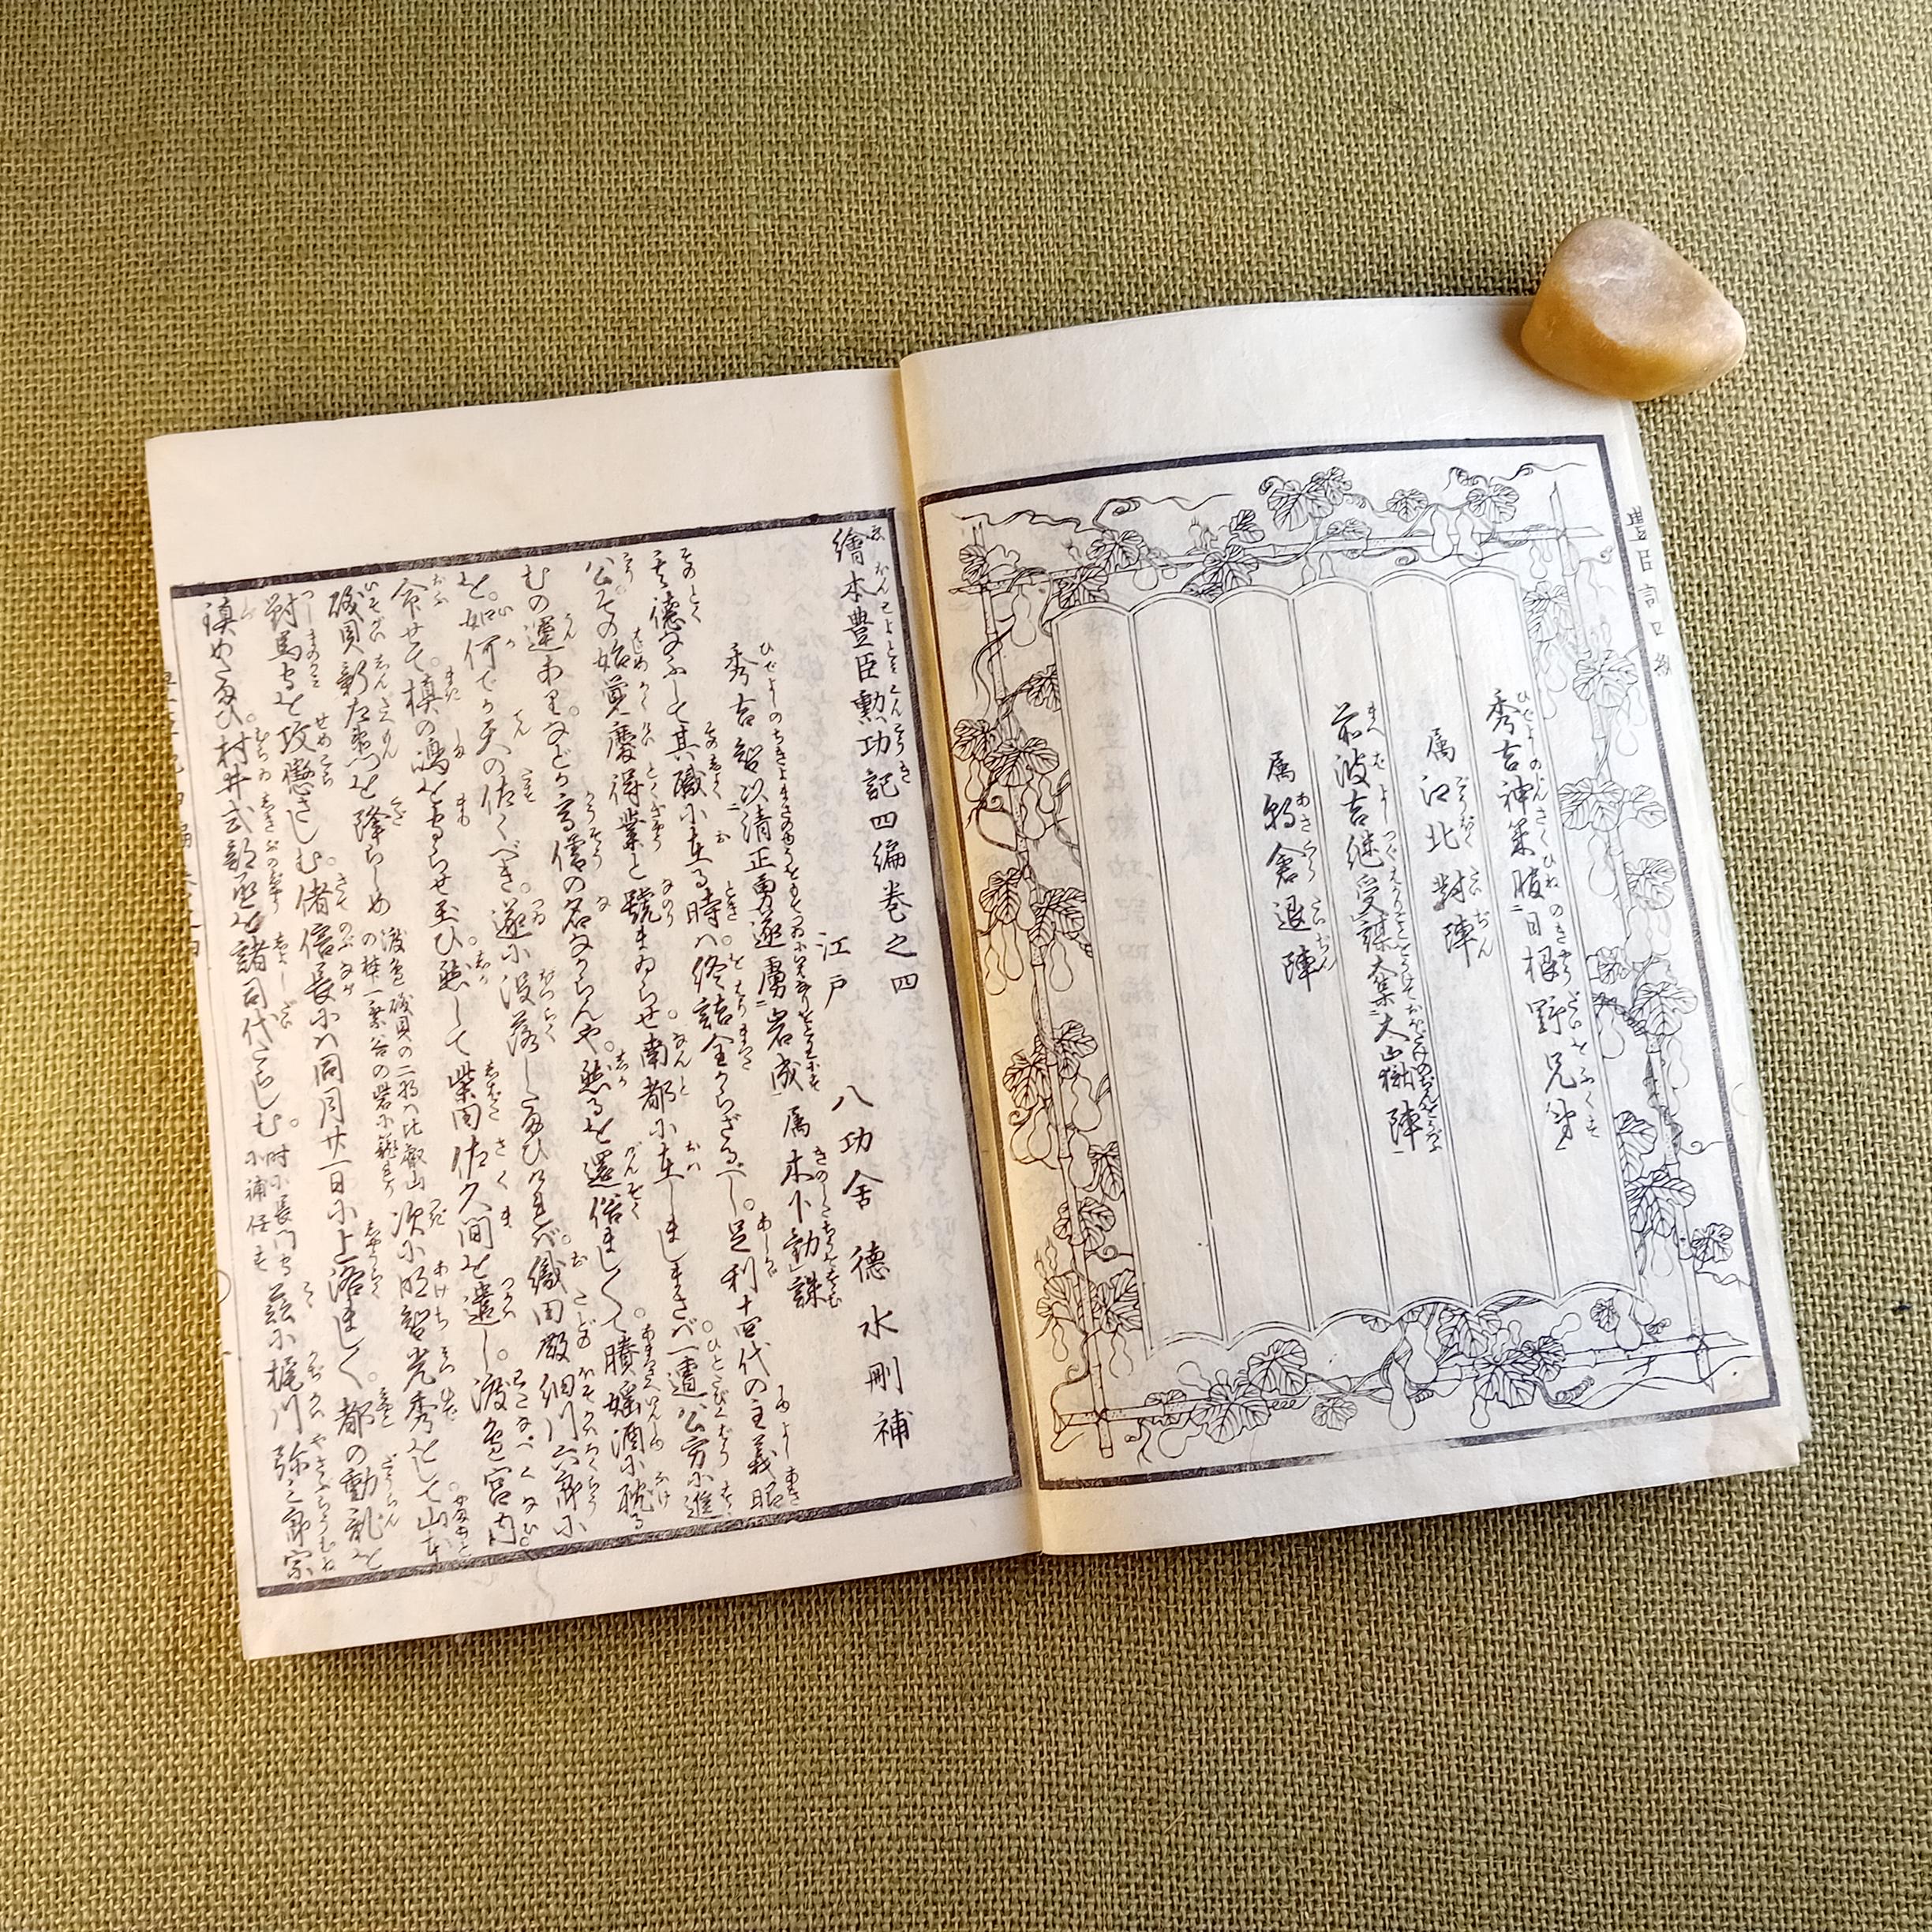 秀吉神策服二日根野兄弟一
属江北對陣
前波吉継受謀大集二大山嶽陣一
属朝倉退陣
繪本豊臣勲功記四編巻之四
江戸 八功舎 徳水刪補
秀吉智以二清正勇逐虜二岩成一 属木下勧誅
其徳なふして其職小在る時ハ終詰全からざるべし。足利十四代の主義昭
公。その始覚慶得業と號まゐらせ南都小在しましまさバ一遭公方小進
むの運ありなどか高僧の名なからんや。然るを還俗まし〳〵て臢婬酒小耽る
を。如何でか天の佑くべき。遂小没落したまひけれバ織田殿細川六郎小
命せて。槙の嶋を守らせ玉ひ。然して柴田佐久間を遣し。渡邉宮内
磯貝新左衛门を降らしめ 渡邉磯貝の二将ハ比叡山の梺一乗谷の砦小籠り 次小明智光秀をして山本
對馬守を攻懲さしむ。偖信長小ハ同月廿一日小上洛まし〳〵。都の動乱を
鎮めたまひ。村井式部丞を諸司代たらしむ。 時小長門守小補任す 茲小梶川弥三郎宗